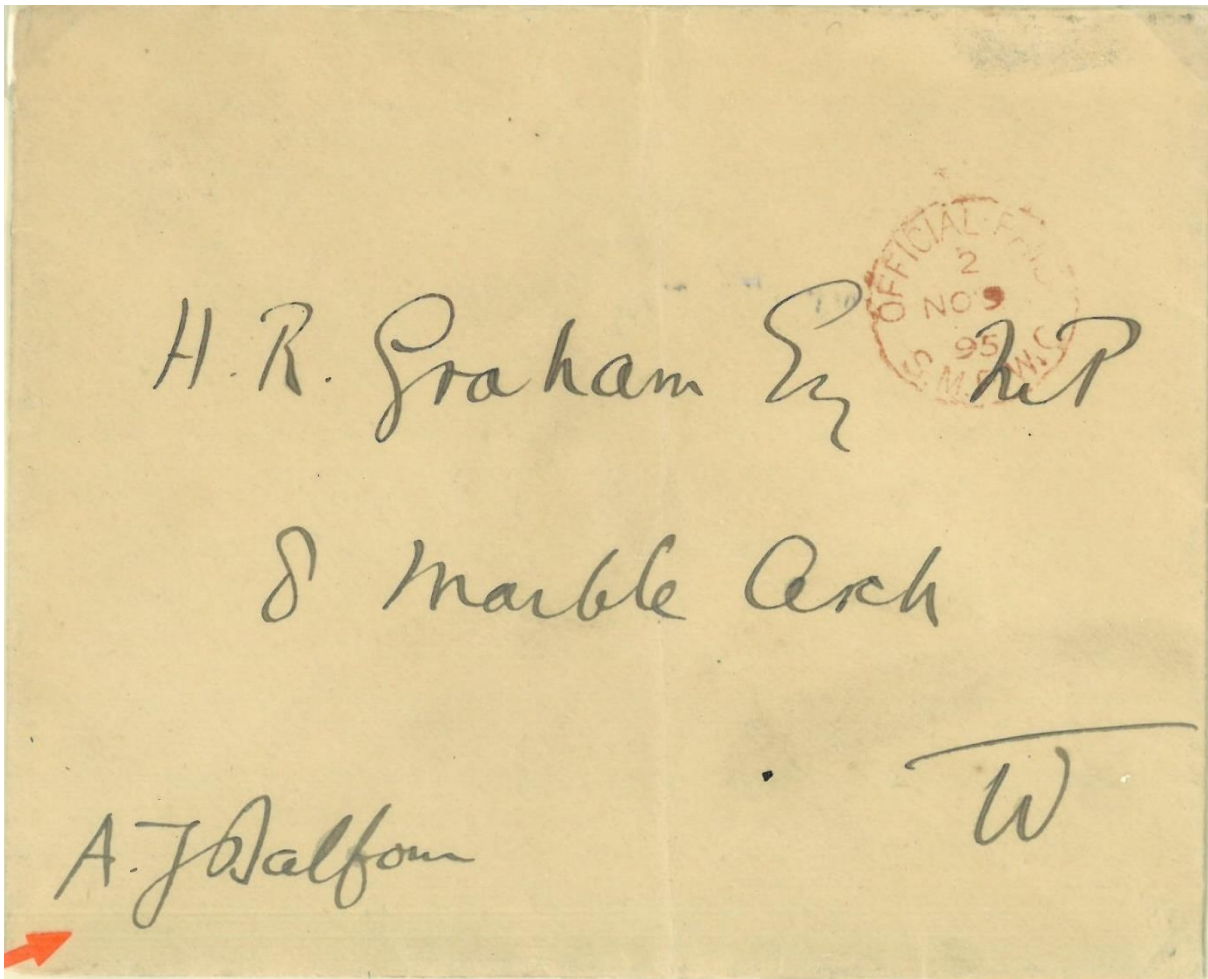 OFFICIAL
2
NO 9
95
H. R. Graham Esq MP
8 Marble Arch
W
A. J Balfour